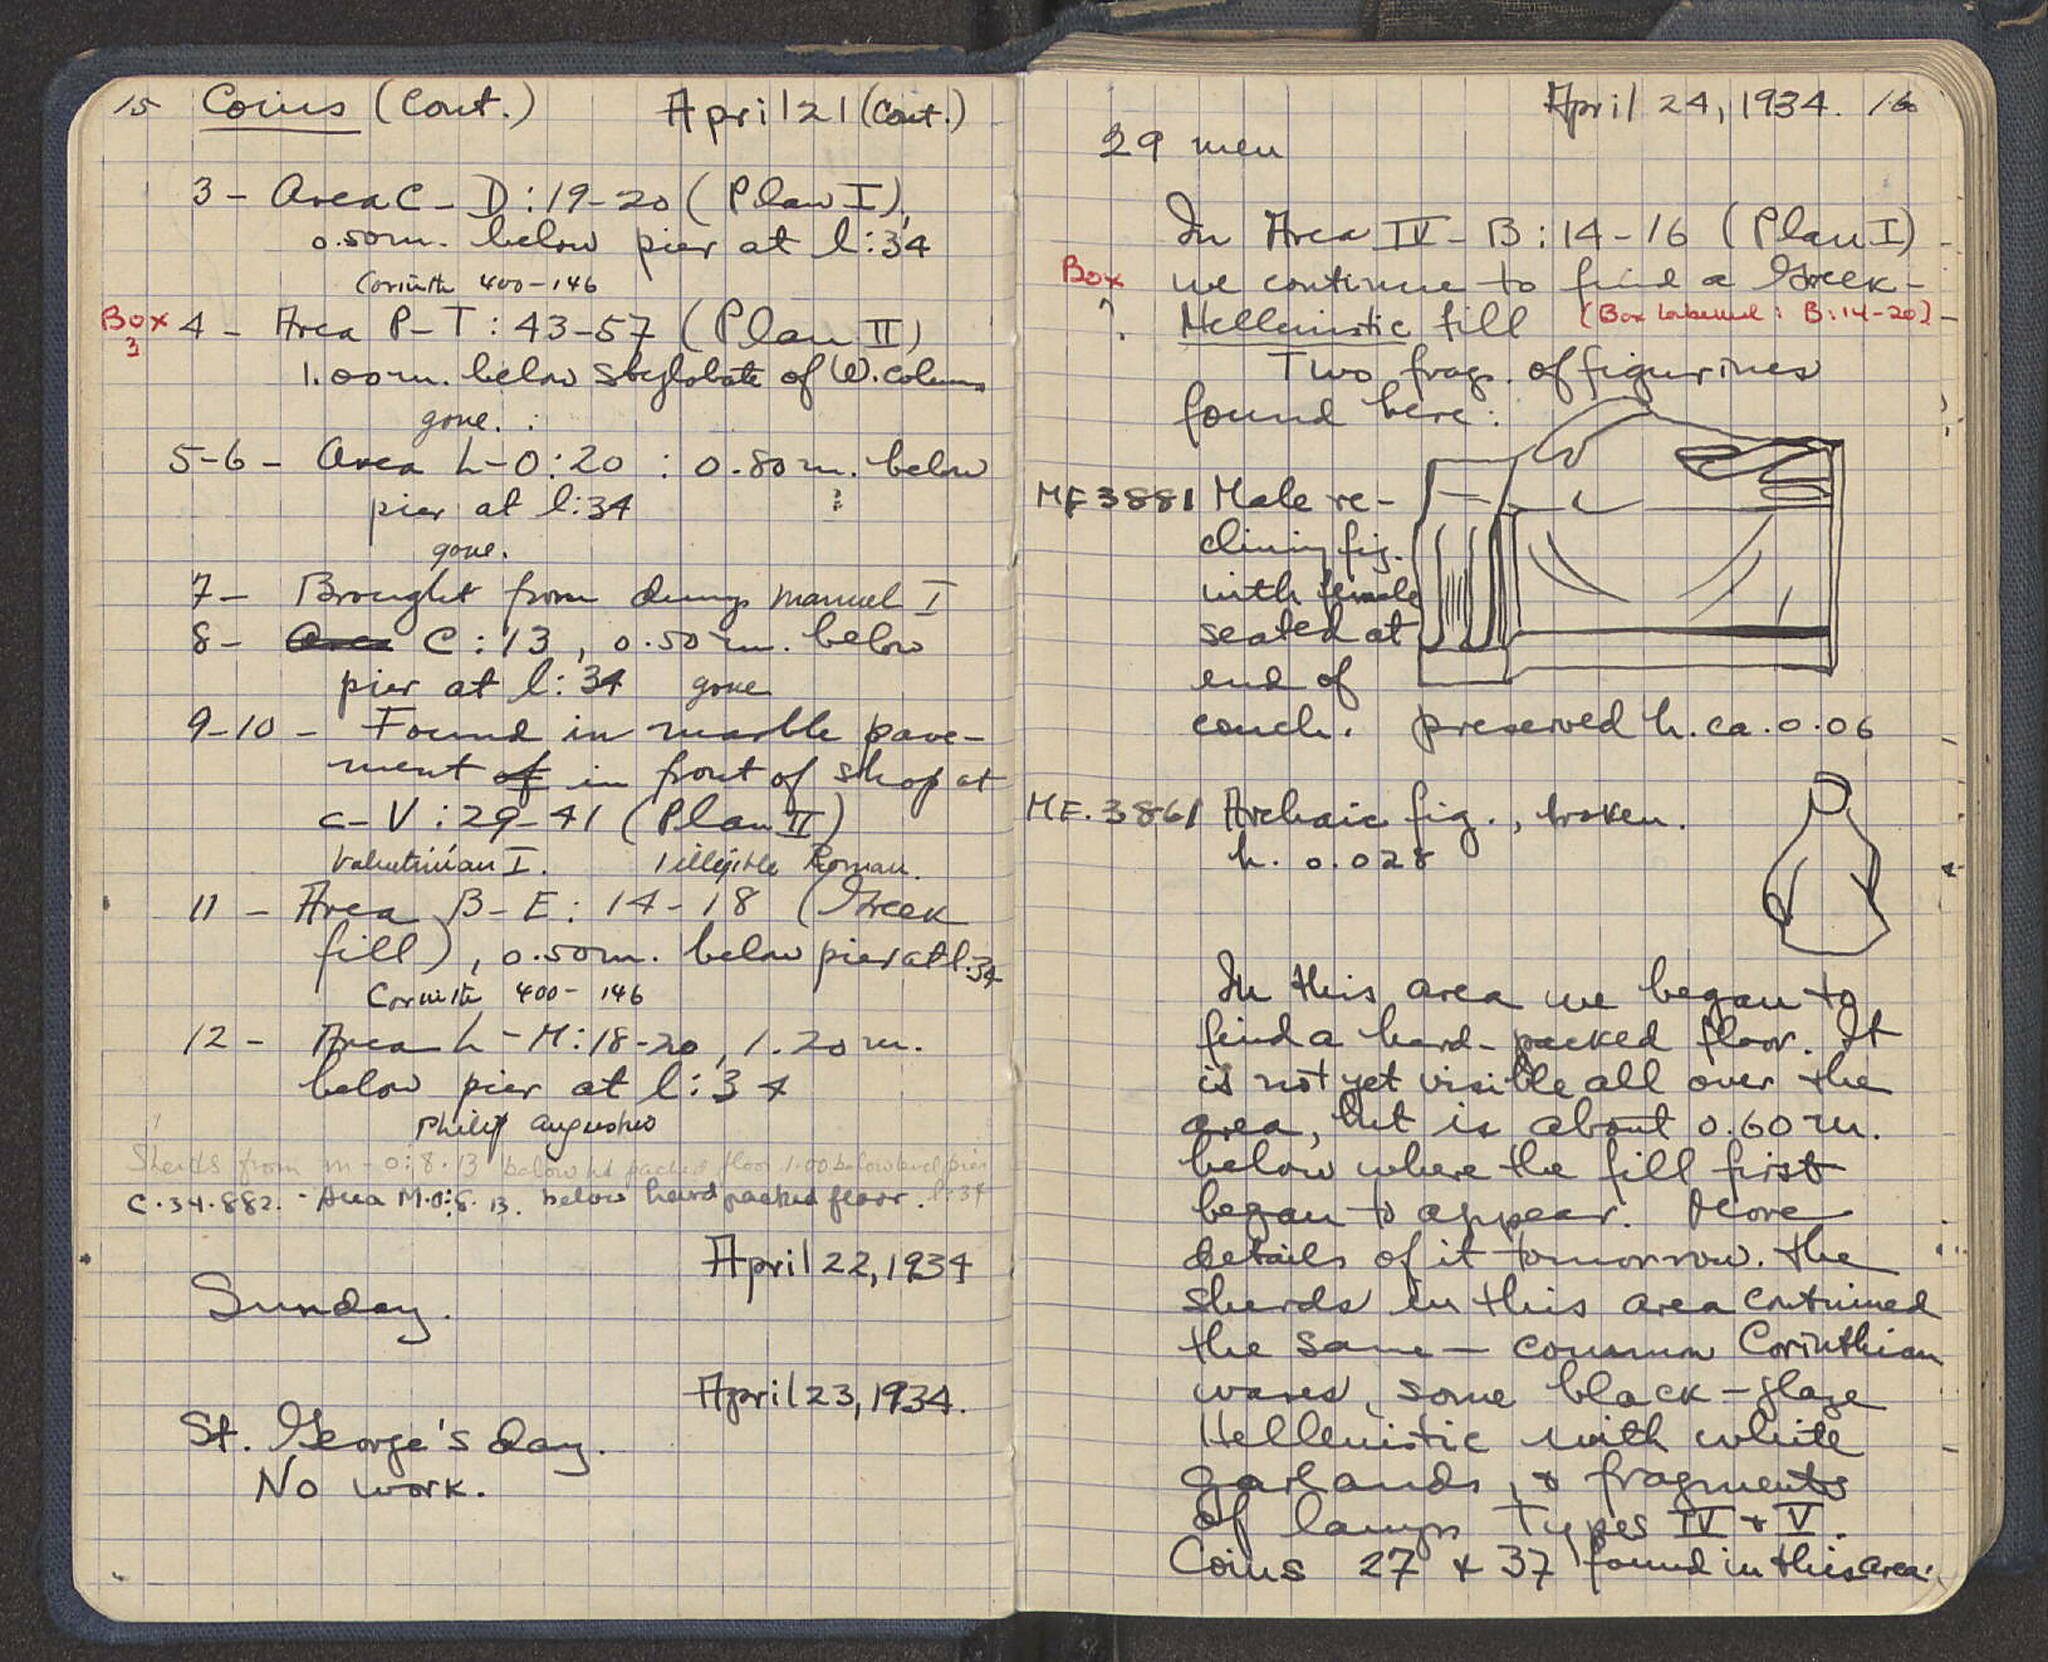 15 Coins (Cont.) April 21 (Cont.)
3 - Area C - D : 19-20 (Plan I),
0.50 m. below pier at l:34
Corinth 400-146
Box 3
4 - Area P-T : 43-57 (Plan II)
1.00 m. below stylobate of W. Colonn
gone.
5-6 - Area L-O : 20 : 0.80 m. below
pier at l:34
gone.
7 - Brought from dump Manuel I
8 - Area C : 13, 0.50 m. below
pier at l:34 gone
9-10 - Found in marble pave-
ment of in front of shop at
C-V : 29-41 (Plan II)
Valentinian I. 1 illegible Roman.
11 - Area B-E : 14-18 (Greek
fill), 0.50 m. below pier at l:34
Corinth 400-146
12 - Area L-M : 18-20, 1.20 m.
below pier at l:34
Philip Augustus
Sherds from M-O:8-13 below hd packed floor 1.00 below pier
l:34
C.34.882. - Area M-O:8-13. below hard packed floor.
April 22, 1934
Sunday.
April 23, 1934.
St. George's day.
No work.
April 24, 1934. 16
29 men
In Area IV - B : 14-16 (Plan I)
Box we continue to find a Greek-
? Hellenistic fill (Box labelled : B:14-20)
Two frags. of figurines
found here:
MF 3881 Male re-
clining fig.
with female
seated at
end of
couch. preserved h. ca. 0.06
MF. 3861 Archaic fig., broken.
h. 0.028
In this area we began to
find a hard-packed floor. It
is not yet visible all over the
area, but is about 0.60 m.
below where the fill first
began to appear. More
details of it tomorrow. The
sherds in this area continued
the same - common Corinthian
wares, some black-glaze
Hellenistic with white
garlands, & fragments
of lamps Types IV & V.
Coins 27 & 37 found in this area.